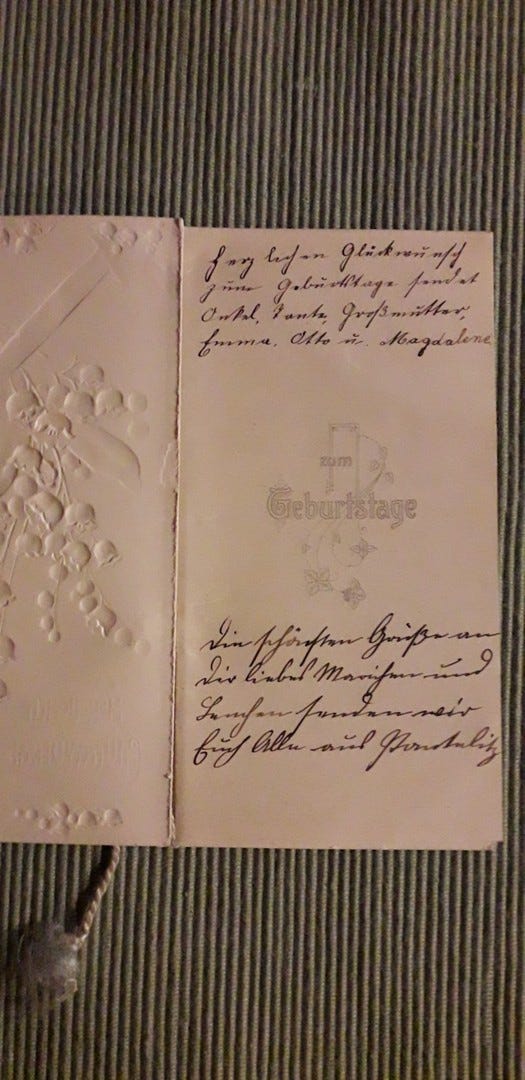 Herzlichen Glückwunsch
zum Geburtstage sendet
Onkel, Tante, Großmutter,
Emma, Otto u. Magdalene
zum
Geburtstage
Die schönsten Grüße an
Dir liebes Mariechen und
Lenchen senden wir
Euch Alle aus Pantelitz